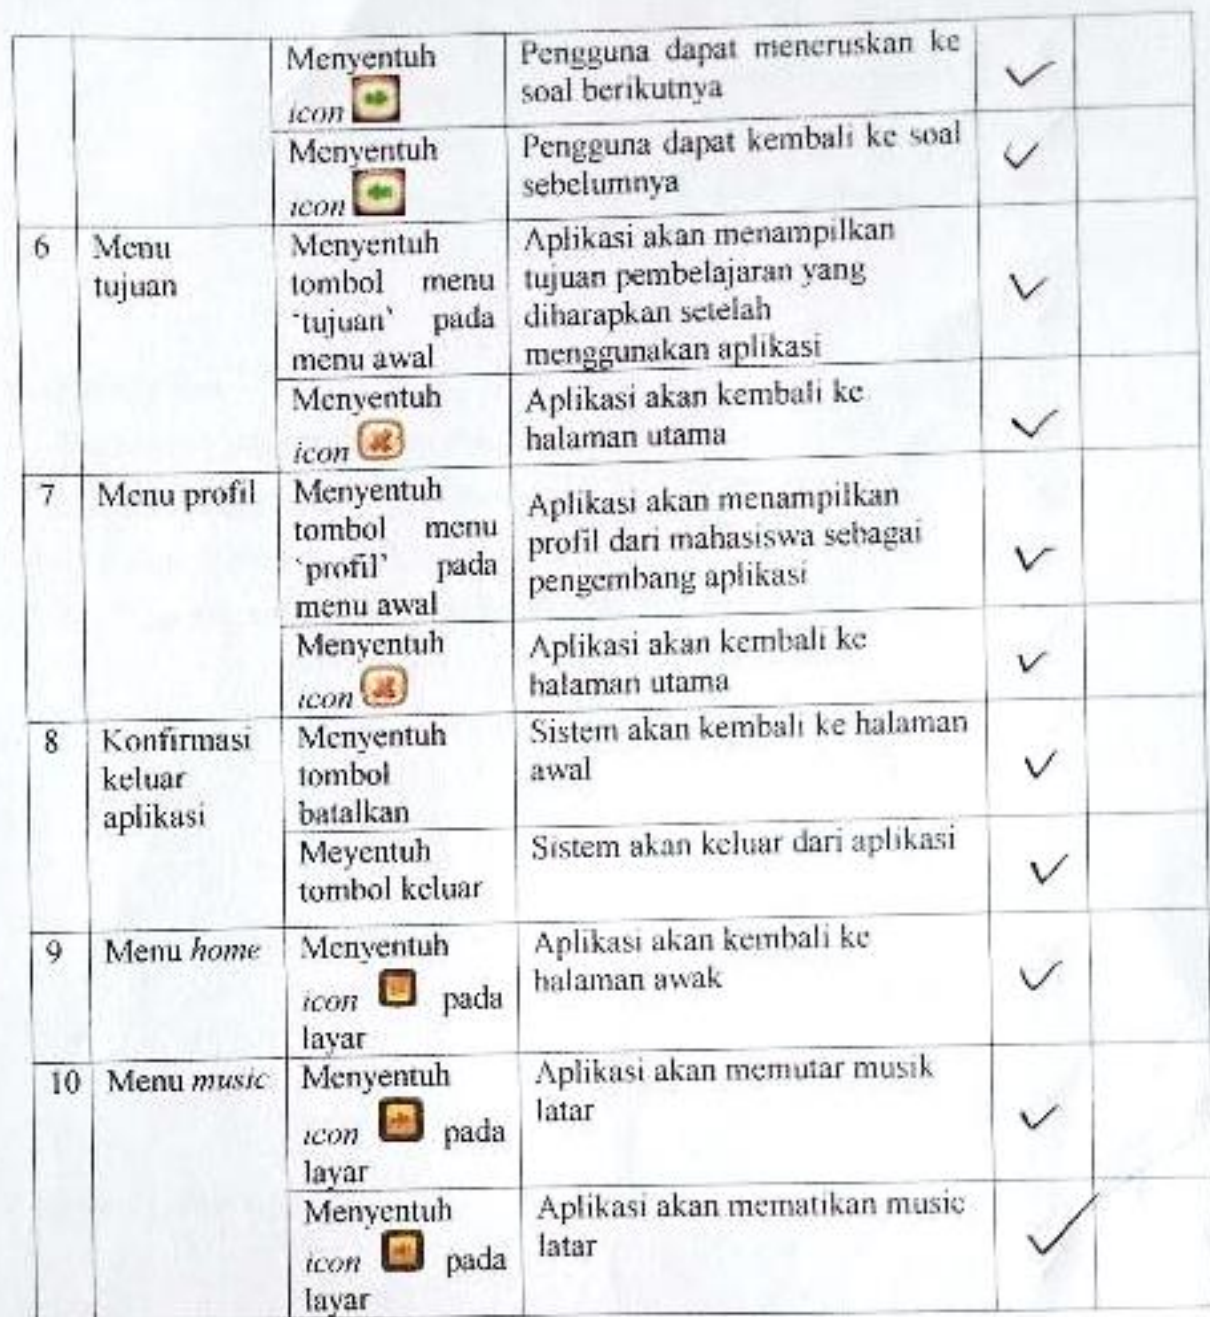 Menyentuh
icon
Pengguna dapat meneruskan ke
soal berikutnya
Menyentuh
icon
Pengguna dapat kembali ke soal
sebelumnya
6
Menu
tujuan
Menyentuh
tombol menu
'tujuan' pada
menu awal
Aplikasi akan menampilkan
tujuan pembelajaran yang
diharapkan setelah
menggunakan aplikasi
Menyentuh
icon
Aplikasi akan kembali ke
halaman utama
7
Menu profil
Menyentuh
tombol menu
'profil' pada
menu awal
Aplikasi akan menampilkan
profil dari mahasiswa sebagai
pengembang aplikasi
Menyentuh
icon
Aplikasi akan kembali ke
halaman utama
8
Konfirmasi
keluar
aplikasi
Menyentuh
tombol
batalkan
Sistem akan kembali ke halaman
awal
Meyentuh
tombol keluar
Sistem akan keluar dari aplikasi
9
Menu home
Menyentuh
icon pada
layar
Aplikasi akan kembali ke
halaman awak
10
Menu music
Menyentuh
icon pada
layar
Aplikasi akan memutar musik
latar
Menyentuh
icon pada
layar
Aplikasi akan mematikan music
latar